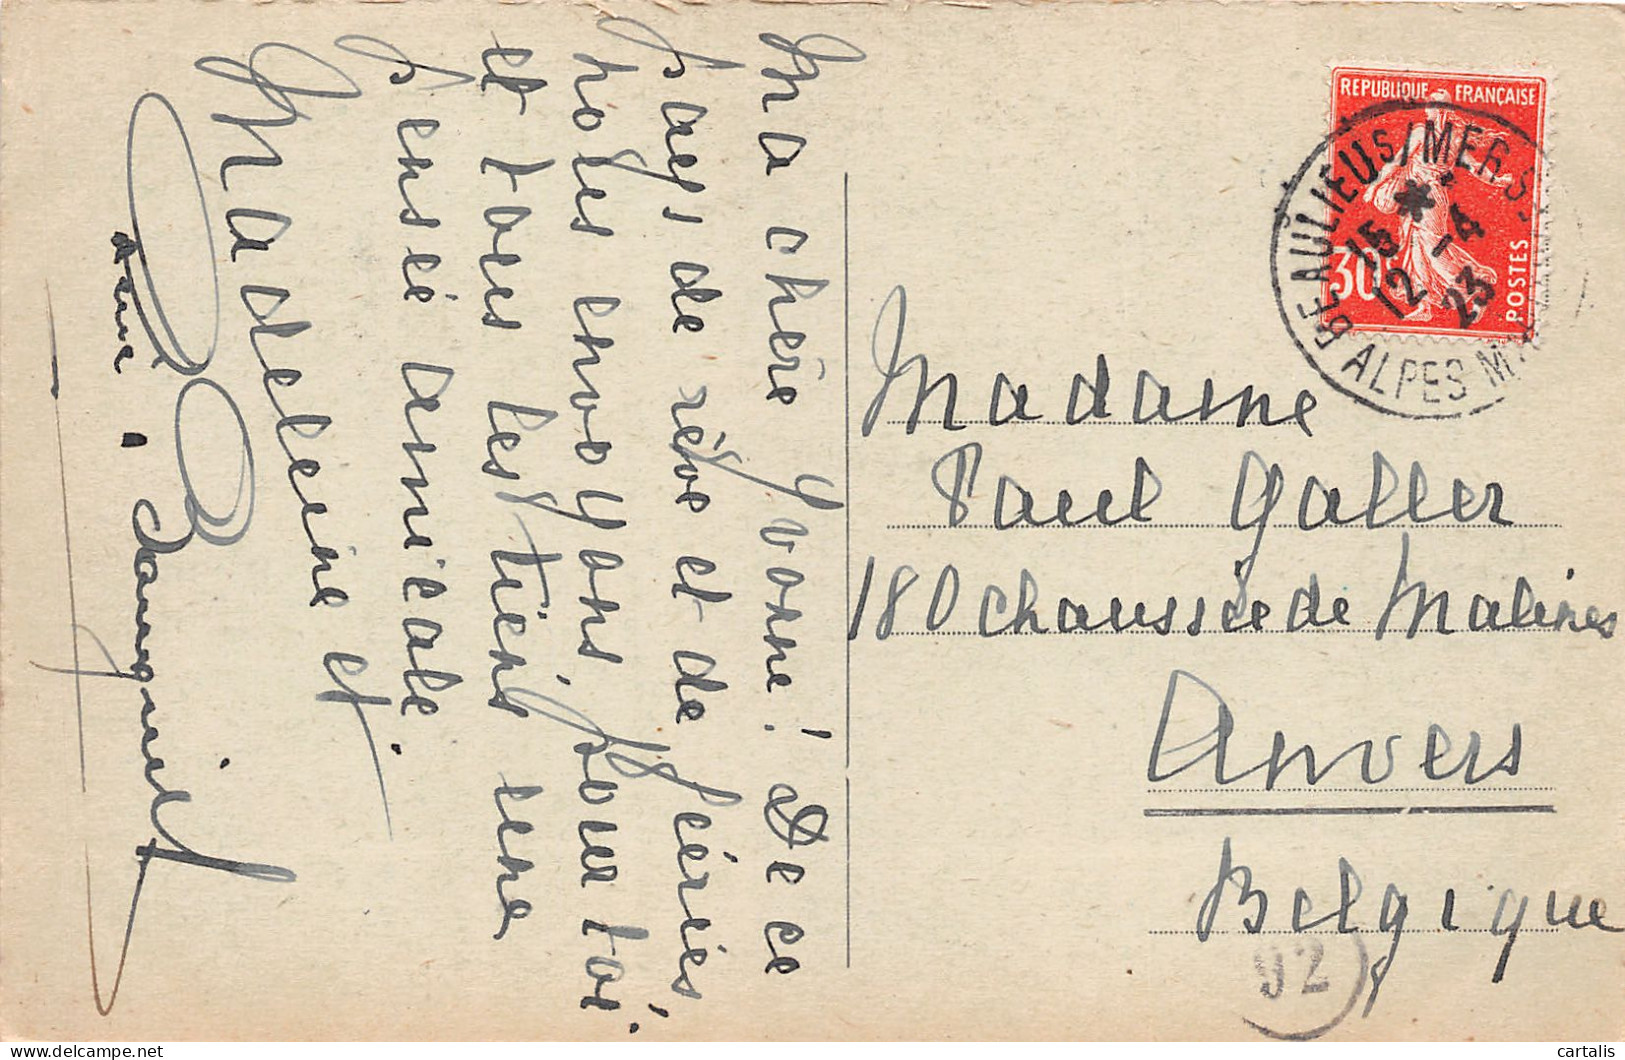 Ma chère Yvonne! De ce
pays de rêve et de féeries,
nous envoyons pour toi
et tous les tiens une
pensée amicale
Madeleine et
REPUBLIQUE FRANÇAISE
30c
POSTES
BEAULIEU S/MER
15
12 -4
23
ALPES M
Madame
Paul Galler
180 chaussée de Malines
Anvers
Belgique
92
delcampe.net
cartalis